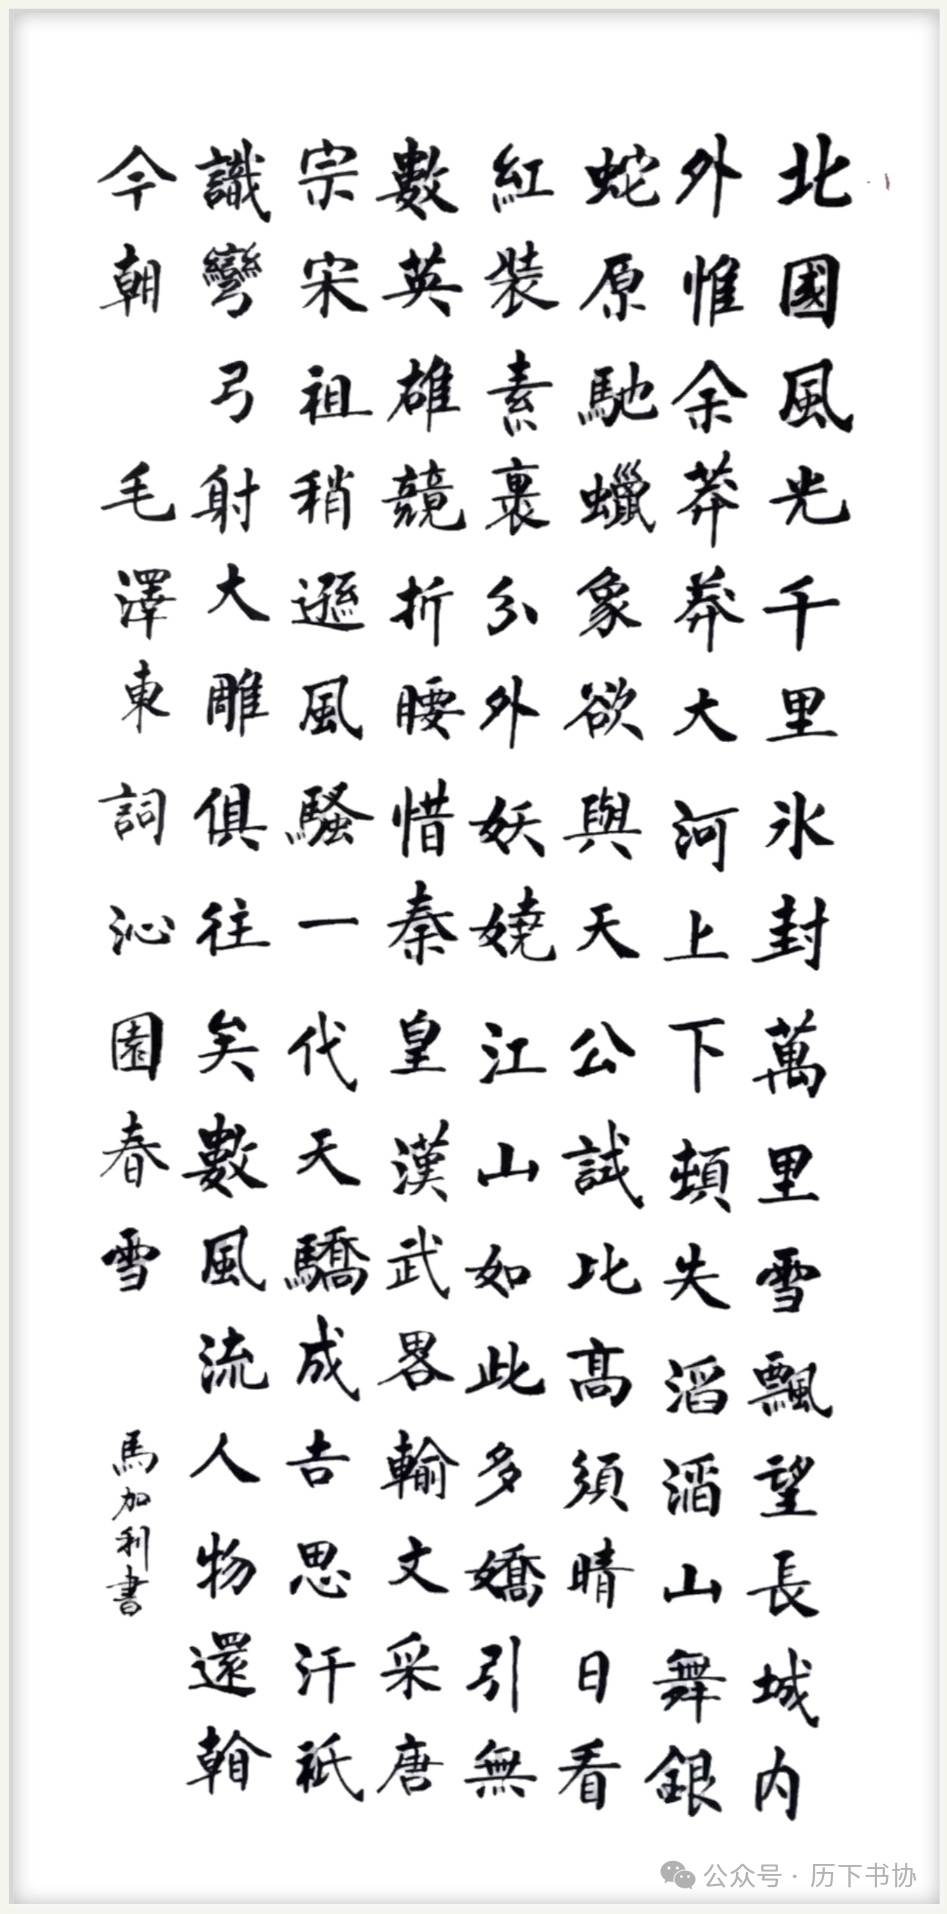 北國風光千里氷封萬里雪飄望長城内
外惟余莽莽大河上下頓失滔滔山舞銀
蛇原馳蠟象欲與天公試比髙須晴日看
紅裝素裹分外妖嬈江山如此多嬌引無
數英雄競折腰惜秦皇漢武畧輸文采唐
宗宋祖稍遜風騷一代天驕成吉思汗衹
識彎弓射大雕俱往矣數風流人物還
今朝 毛澤東詞沁園春雪
馬加利書
公众号 · 历下书协